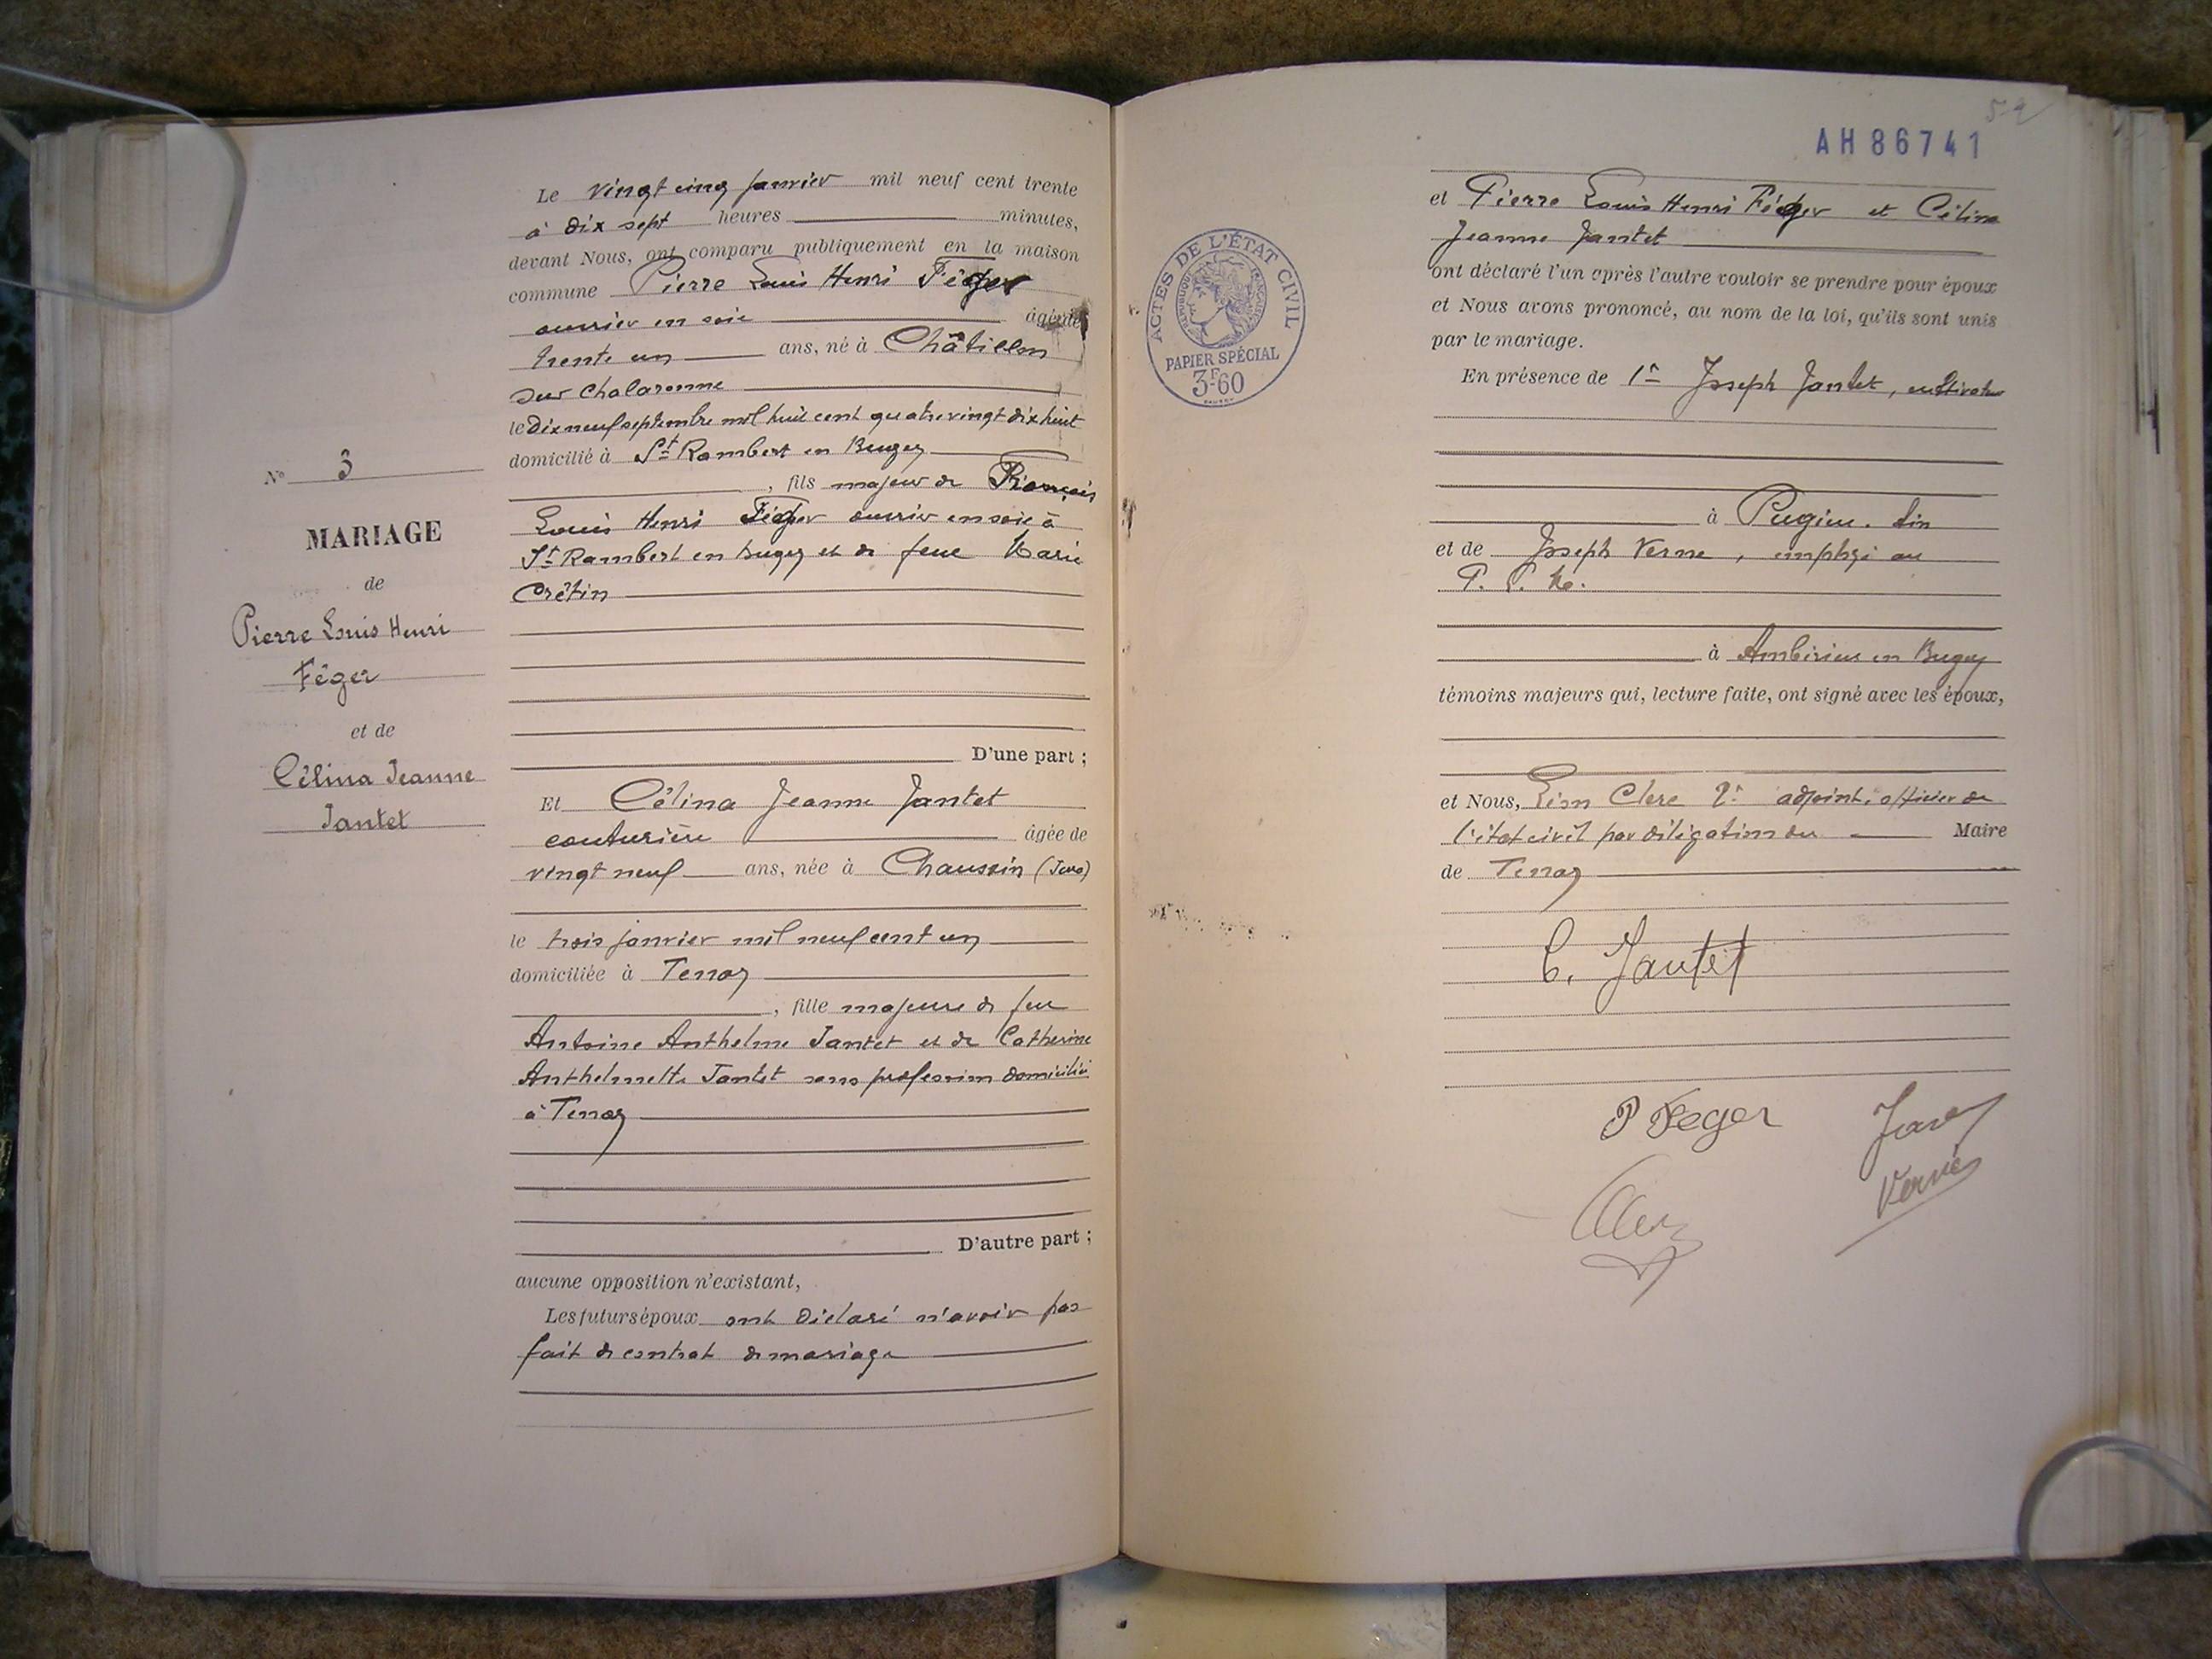 Le vingt cinq janvier mil neuf cent trente
à dix sept heures minutes,
devant Nous, ont comparu publiquement en la maison
commune Pierre Louis Henri Féger
ouvrier en soie âgé de
trente un ans, né à Châtillon
sur Chalaronne
le dix neuf septembre mil huit cent quatre vingt dix huit
domicilié à St Rambert en Bugey
, fils majeur de François
Louis Henri Féger ouvrier en soie à
St Rambert en Bugey et de feue Marie
Crétin
N° 3
MARIAGE
de
Pierre Louis Henri
Féger
et de
Célina Jeanne
Jantet
D'une part ;
Et Célina Jeanne Jantet
couturière âgée de
vingt neuf ans, née à Chaussin (Jura)
le trois janvier mil neuf cent un
domiciliée à Tenay
, fille majeure de feu
Antoine Anthelme Jantet et de Catherine
Anthelmette Jantet sans profession domiciliée
à Tenay
D'autre part ;
aucune opposition n'existant,
Les futurs époux ont déclaré n'avoir pas
fait de contrat de mariage
AH 86741
et Pierre Louis Henri Féger et Célina
Jeanne Jantet
ont déclaré l'un après l'autre vouloir se prendre pour époux
et Nous avons prononcé, au nom de la loi, qu'ils sont unis
par le mariage.
En présence de Joseph Jantet, cultivateur
à Pugieu. Ain
et de Joseph Verne, employé au
P. L. M.
à Ambérieu en Bugey
témoins majeurs qui, lecture faite, ont signé avec les époux,
et Nous, Léon Clerc 2e adjoint, officier de
l'état civil par délégation du Maire
de Tenay
C. Jantet
P Feger
Verne
ACTES DE L'ÉTAT CIVIL
RÉPUBLIQUE FRANÇAISE
PAPIER SPÉCIAL
3F60